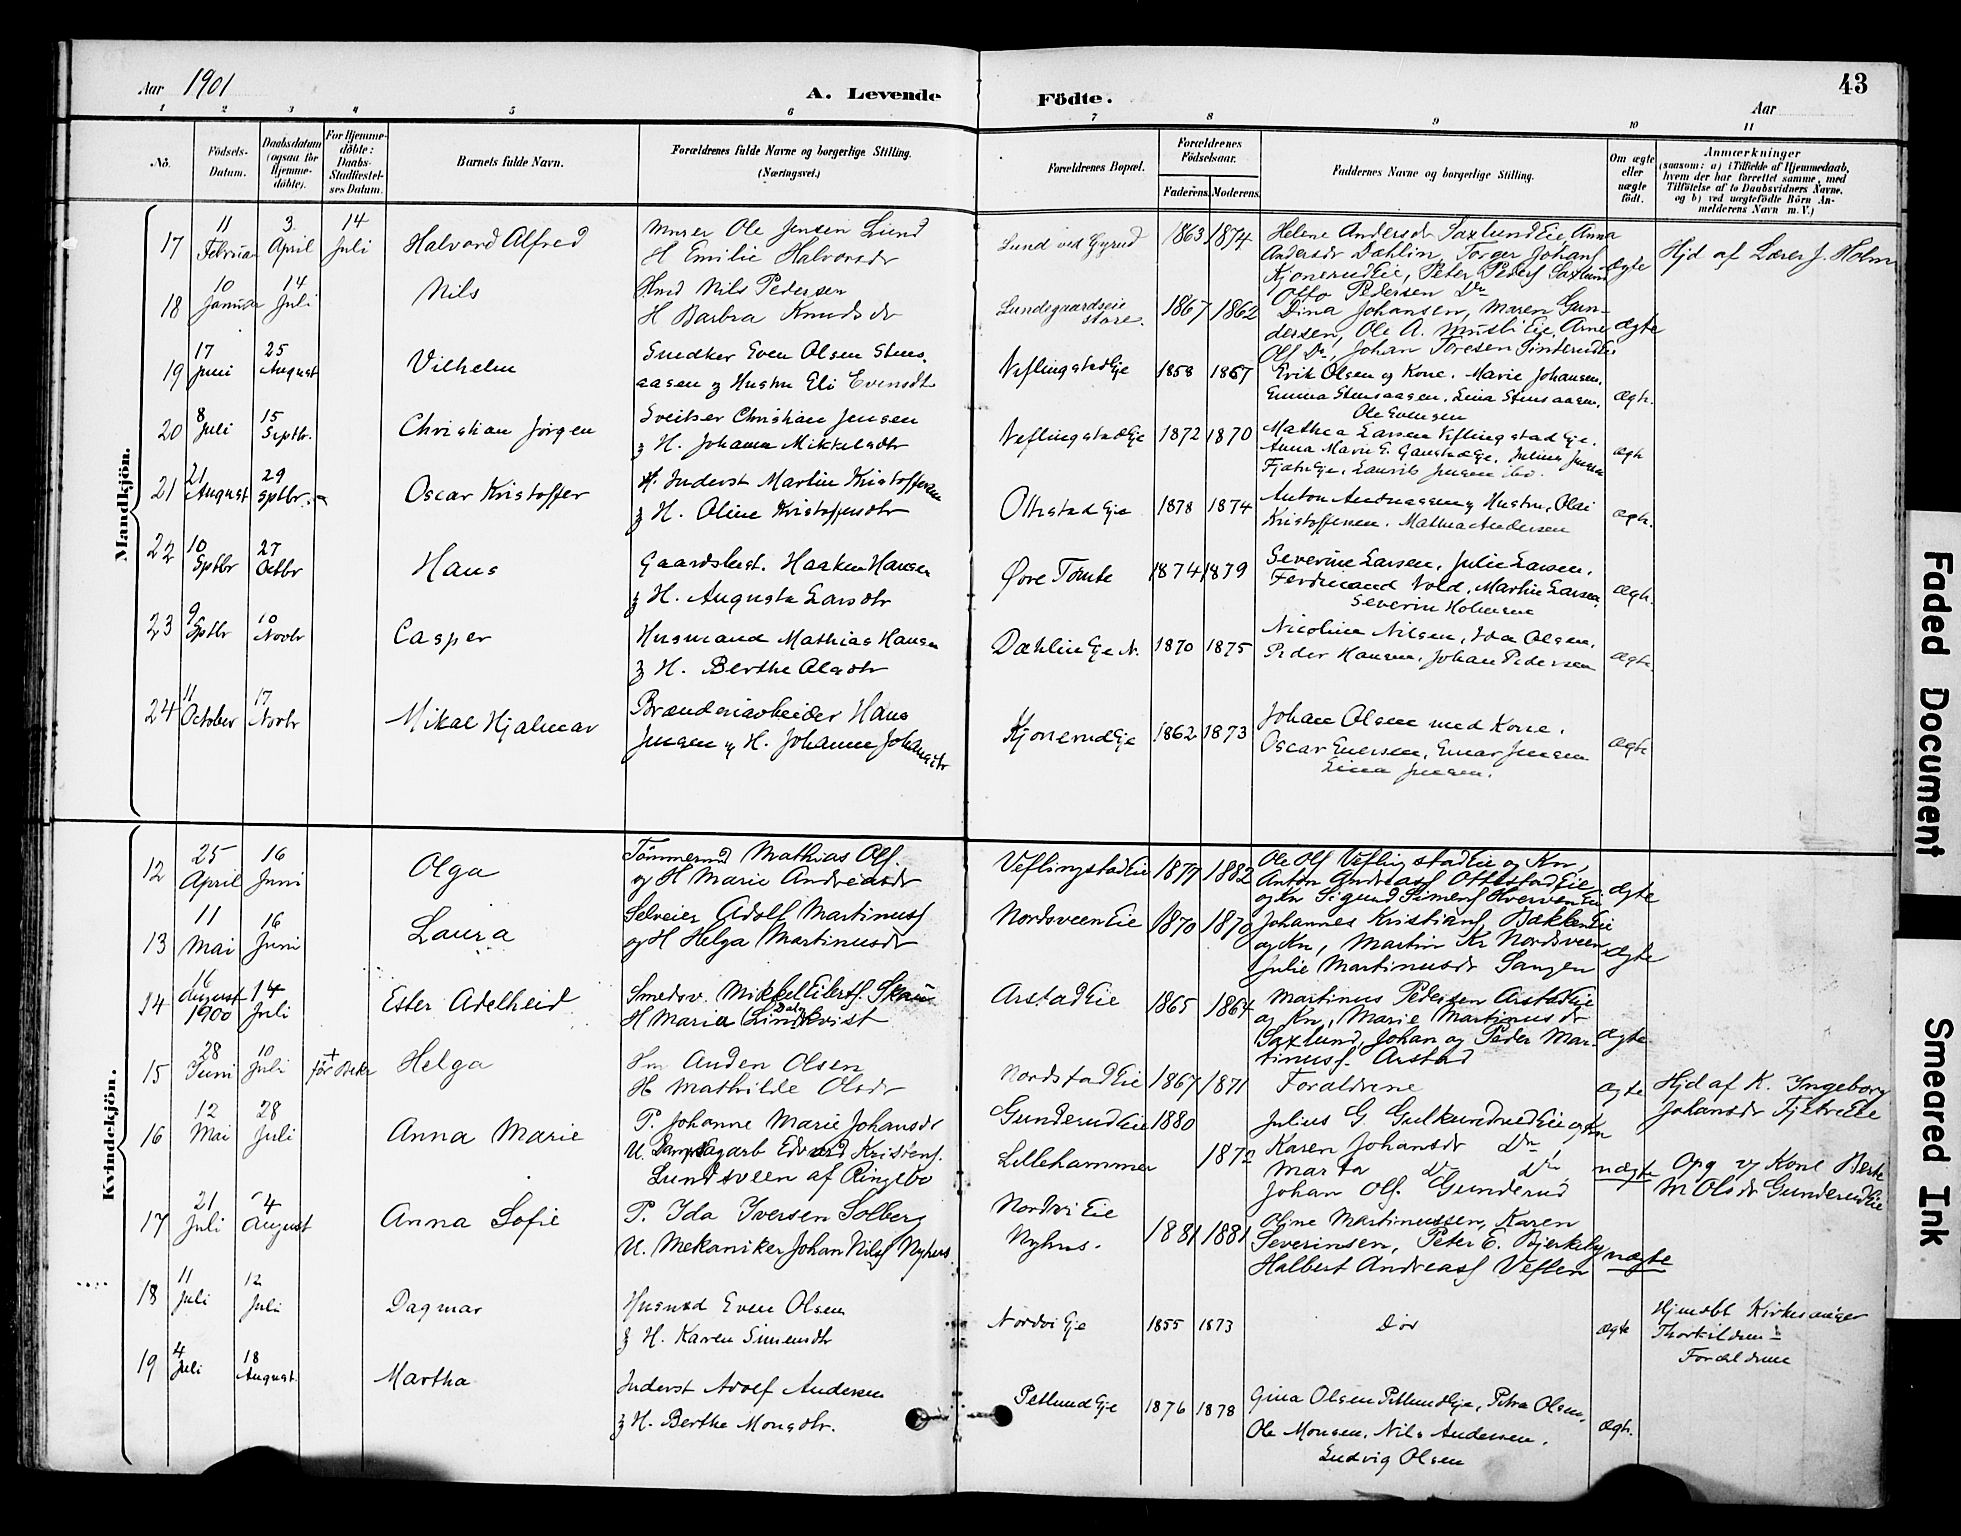 Aar 1901
A. Levende
Födte.
43
Aar
1 2 3 4 5 6 7 8 9 10 11
No.
Födsels-
Datum.
Daabsdatum
(ogsaa for
Hjemme-
döbte).
For Hjemme-
döbte:
Daabs-
Stadfæstel-
ses Datum.
Barnets fulde Navn.
Forældrenes fulde Navne og borgerlige Stilling.
(Næringsvei.)
Forældrenes Bopæl.
Forældrenes
Födselsaar.
Faderens. Moderens.
Faddernes Navne og borgerlige Stilling.
Om ægte
eller
uægte
födt.
Anmærkninger
(saasom: a) i Tilfælde af Hjemmedaab,
hvem der har forrettet samme, med
Tilföielse af to Daabsvidners Navne,
og b) ved uægtefödte Börn An-
melderens Navn m. V.)
Mandkjön.
17 11 Februar 3 April 14 Juli Halvord Alfred
Murer Ole Jensen Lund
H Emilie Halvorsdr
Lund ved Gyrud 1863 1874
Helene Andersdr Saxlund Eie, Anna
Andersdr Dæhlin, Torger Johans
Kjonerud Eie, Peter Peders Saxlund
Otto Pedersen Do
ægte
Hjd af Lærer J. Holm
18 10 Januar 14 Juli Nils
Hmd Nils Pedersen
H Barbra Knudsdr
Lundegaardseie
store. 1867 1862
Dina Johansen, Maren Gun-
dersen, Ole A. Musli Eie, Arne
Ols Do, Johan Toresen Sinterud Ei
ægte
19 17 Juni 25 August Vilhelm
Snedker Even Olsen Stens-
aasen og Hustru Eli Evensdtr
Veflingstad Eje 1858 1867
Erik Olsen og Kone. Marie Johansen.
Emma Stensaasen. Lina Stensaasen.
Ole Evensen
ægte.
20 8 Juli 15 Septbr. Christian Jørgen
Sveitser Christian Jensen
& H. Johanna Mikkelsdtr
Veflingstad Eje 1872 1870
Mathea Larsen Veflingstad Eje.
Anna Marie E. Gaustad Eje. Julius Jensen
Fjæten Eje, Laurits Jensen ibd.
ægte
21 21 August 29 Sptbr. Oscar Kristoffer
Inderst Martin Kristoffersen
& H. Oline Kristoffersdtr
Ottestad Eje 1878 1874
Anton Andreassen og Hustru, Olai
Kristoffersen. Mathea Andersen
ægte.
22 10 Sptbr 27 Octbr Hans
Gaardsbest. Haaken Hansen
& H. Augusta Larsdtr
Øvre Tomte 1874 1879
Severine Larsen, Julie Larsen,
Ferdinand Vold, Martin Larsen,
Severin Holmen
ægte.
23 9 Sptbr 10 Novbr Casper
Husmand Mathias Hansen
& H. Berthe Olasdtr
Dæhlin Eje N. 1870 1875
Nicoline Nilsen, Ida Olsen.
Peder Hansen, Johan Pedersen
ægte
24 11 October 17 Novbr Mikal Hjalmar
Brænderiarbeider Hans
Jensen og H. Johanne Johansdtr
Kjonerud Eje 1862 1873
Johan Olsen med Kone.
Oscar Evensen, Einar Jensen
Lina Jensen.
ægte
Kvindekjön.
12 25 April 16 Juni Olga
Tömmermd Mathias Ols.
og H Marie Andreasdr
Veflingstad Eie 1877 1882
Ole Ols Veflingstad Eie og Kn,
Anton Andreass Ottestad Eie
og Kn Sigurd Simens Hverven Eie
ægte
13 11 Mai 16 Juni Laura
Selveier Adolf Martinuss
og H Helga Martinusdr
Nordsveen Eie 1870 1870
Johannes Kristians, Bakken Eie
og Kn, Martin Kr Nordsveen,
Julie Martinusdr Sangen
ægte
14 16 August 1900 14 Juli Ester Adelheid
Smedsv. Mikkel Eilerts. Skau
H Maria Lindkvist
Arstad Eie 1865 1864
Martinus Pedersen Arstad Eie
og Kn, Marie Martinusdr
Saxlund, Johan og Peder Mar-
tinuss. Arstad
ægte
15 28 Juni 10 Juli + før Bekr Helga
Hm Anden Olsen
H Mathilde Olsdr
Nordstad Eie 1867 1871
Forældrene
ægte
Hjd af K. Ingeborg
Johansdr Fjetre Eie
16 12 Mai 28 Juli Anna Marie
P. Johanne Marie Johansdr
U. Dampsagarb Edvard Kristens.
Lundsveen af Ringebo
Gunderud Eie 1880
Lillehammer 1872
Julius G Gulkundrud Eie og Kn
Karen Johansdr Do,
Marta do do
Johan Ols. Gunderud
uægte
Opg og Kone Berte
M Olsdr Gunderud Eie
17 21 Juli 4 August Anna Sofie
P. Ida Iversen Solberg
U. Mekaniker Johan Nilss Nyhus
Nordvi Eie
Nyhus. 1881 1881
Oline Martinussen, Karen
Severinsen, Peter E. Bjerkeby
Halbert Andreass Veflen
uægte
18 11 Juli 12 Juli Dagmar
Husmd Even Olsen
& H. Karen Simensdtr
Nordvi Eje 1855 1873
Død
ægte
Hjmdbt Kirkesanger
Thorkildsen
Forældrene
19 4 Juli 18 August. Martha
Inderst Adolf Andersen
& H. Berthe Monsdtr.
Petlund Eje 1876 1878
Gina Olsen Petlund Eje, Petra Olsen,
Ole Monsen, Nils Andersen.
Ludvig Olsen
ægte.
Faded Document
Smeared Ink